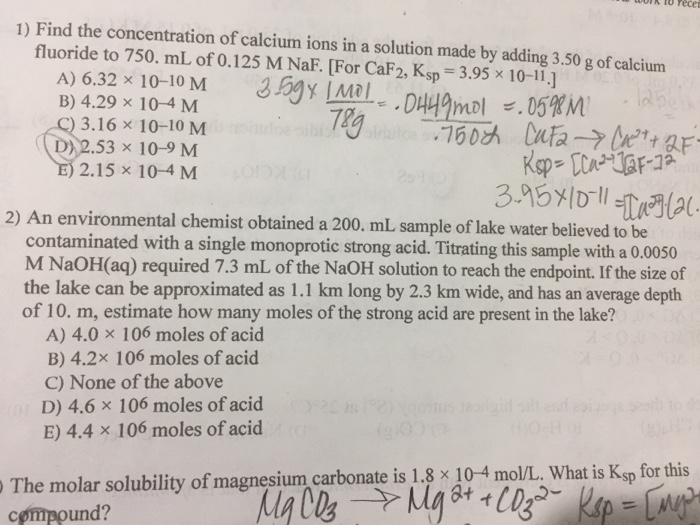 1) Find the concentration of calcium ions in a solution made by adding 3.50 g of calcium
fluoride to 750. mL of 0.125 M NaF. [For CaF2, Ksp = 3.95 × 10–11.]
A) 6.32 × 10–10 M
B) 4.29 × 10–4 M
C) 3.16 × 10–10 M
D) 2.53 × 10–9 M
E) 2.15 × 10–4 M
3.50g x 1 mol = .0449 mol = .0598 M
78g .750
CaF2 → Ca2+ + 2F-
Ksp = [Ca2+][2F-]2
3.95x10-11 = [Ca2+](2(.
2) An environmental chemist obtained a 200. mL sample of lake water believed to be
contaminated with a single monoprotic strong acid. Titrating this sample with a 0.0050
M NaOH(aq) required 7.3 mL of the NaOH solution to reach the endpoint. If the size of
the lake can be approximated as 1.1 km long by 2.3 km wide, and has an average depth
of 10. m, estimate how many moles of the strong acid are present in the lake?
A) 4.0 × 106 moles of acid
B) 4.2× 106 moles of acid
C) None of the above
D) 4.6 × 106 moles of acid
E) 4.4 × 106 moles of acid
) The molar solubility of magnesium carbonate is 1.8 × 10–4 mol/L. What is Ksp for this
compound?
MgCO3 → Mg2+ + CO32- Ksp = [Mg2+